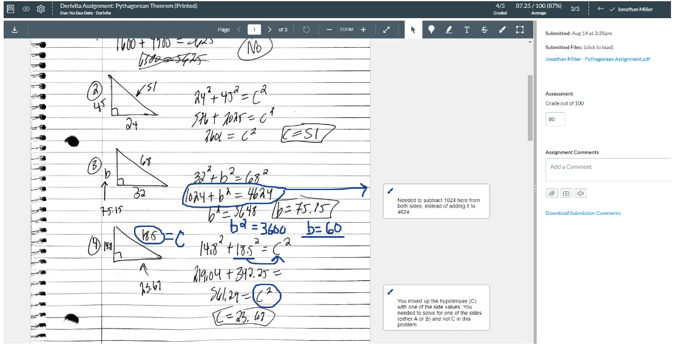 Derivita Assignment: Pythagorean Theorem (Printed)
Due: No Due Date - Derivita
4/5
Graded
87.25 / 100 (87%)
Average
3/5
Jonathan Miller
Page
1
of 3
ZOOM
No
②
51
45
24
24² + 45² = C²
576 + 2025 = C²
2601 = C²
C = 51
③
68
b
32
75.15
32² + b² = 68²
1024 + b² = 4624
b² = 5648
b = 75.15
b² = 3600
b = 60
④
18.5 = C
14.8
23.67
14.8² + 18.5² = C²
219.04 + 342.25 =
561.29 = C²
C = 23.67
Needed to subtract 1024 here from
both sides, instead of adding it to
4624
You mixed up the hypotenuse (C)
with one of the side values. You
needed to solve for one of the sides
(either A or B) and not C in this
problem
Submitted: Aug 14 at 3:35pm
Submitted Files: (click to load)
Jonathan Miller - Pythagorean Assignment.pdf
Assessment
Grade out of 100
80
Assignment Comments
Add a Comment
Download Submission Comments